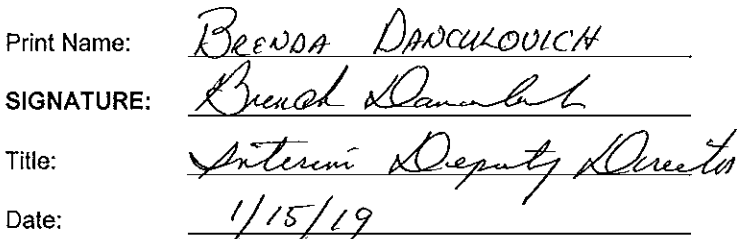 Print Name: BRENDA DANCULOVICH
SIGNATURE: Brenda Danculovich
Title: Interim Deputy Director
Date: 1/15/19